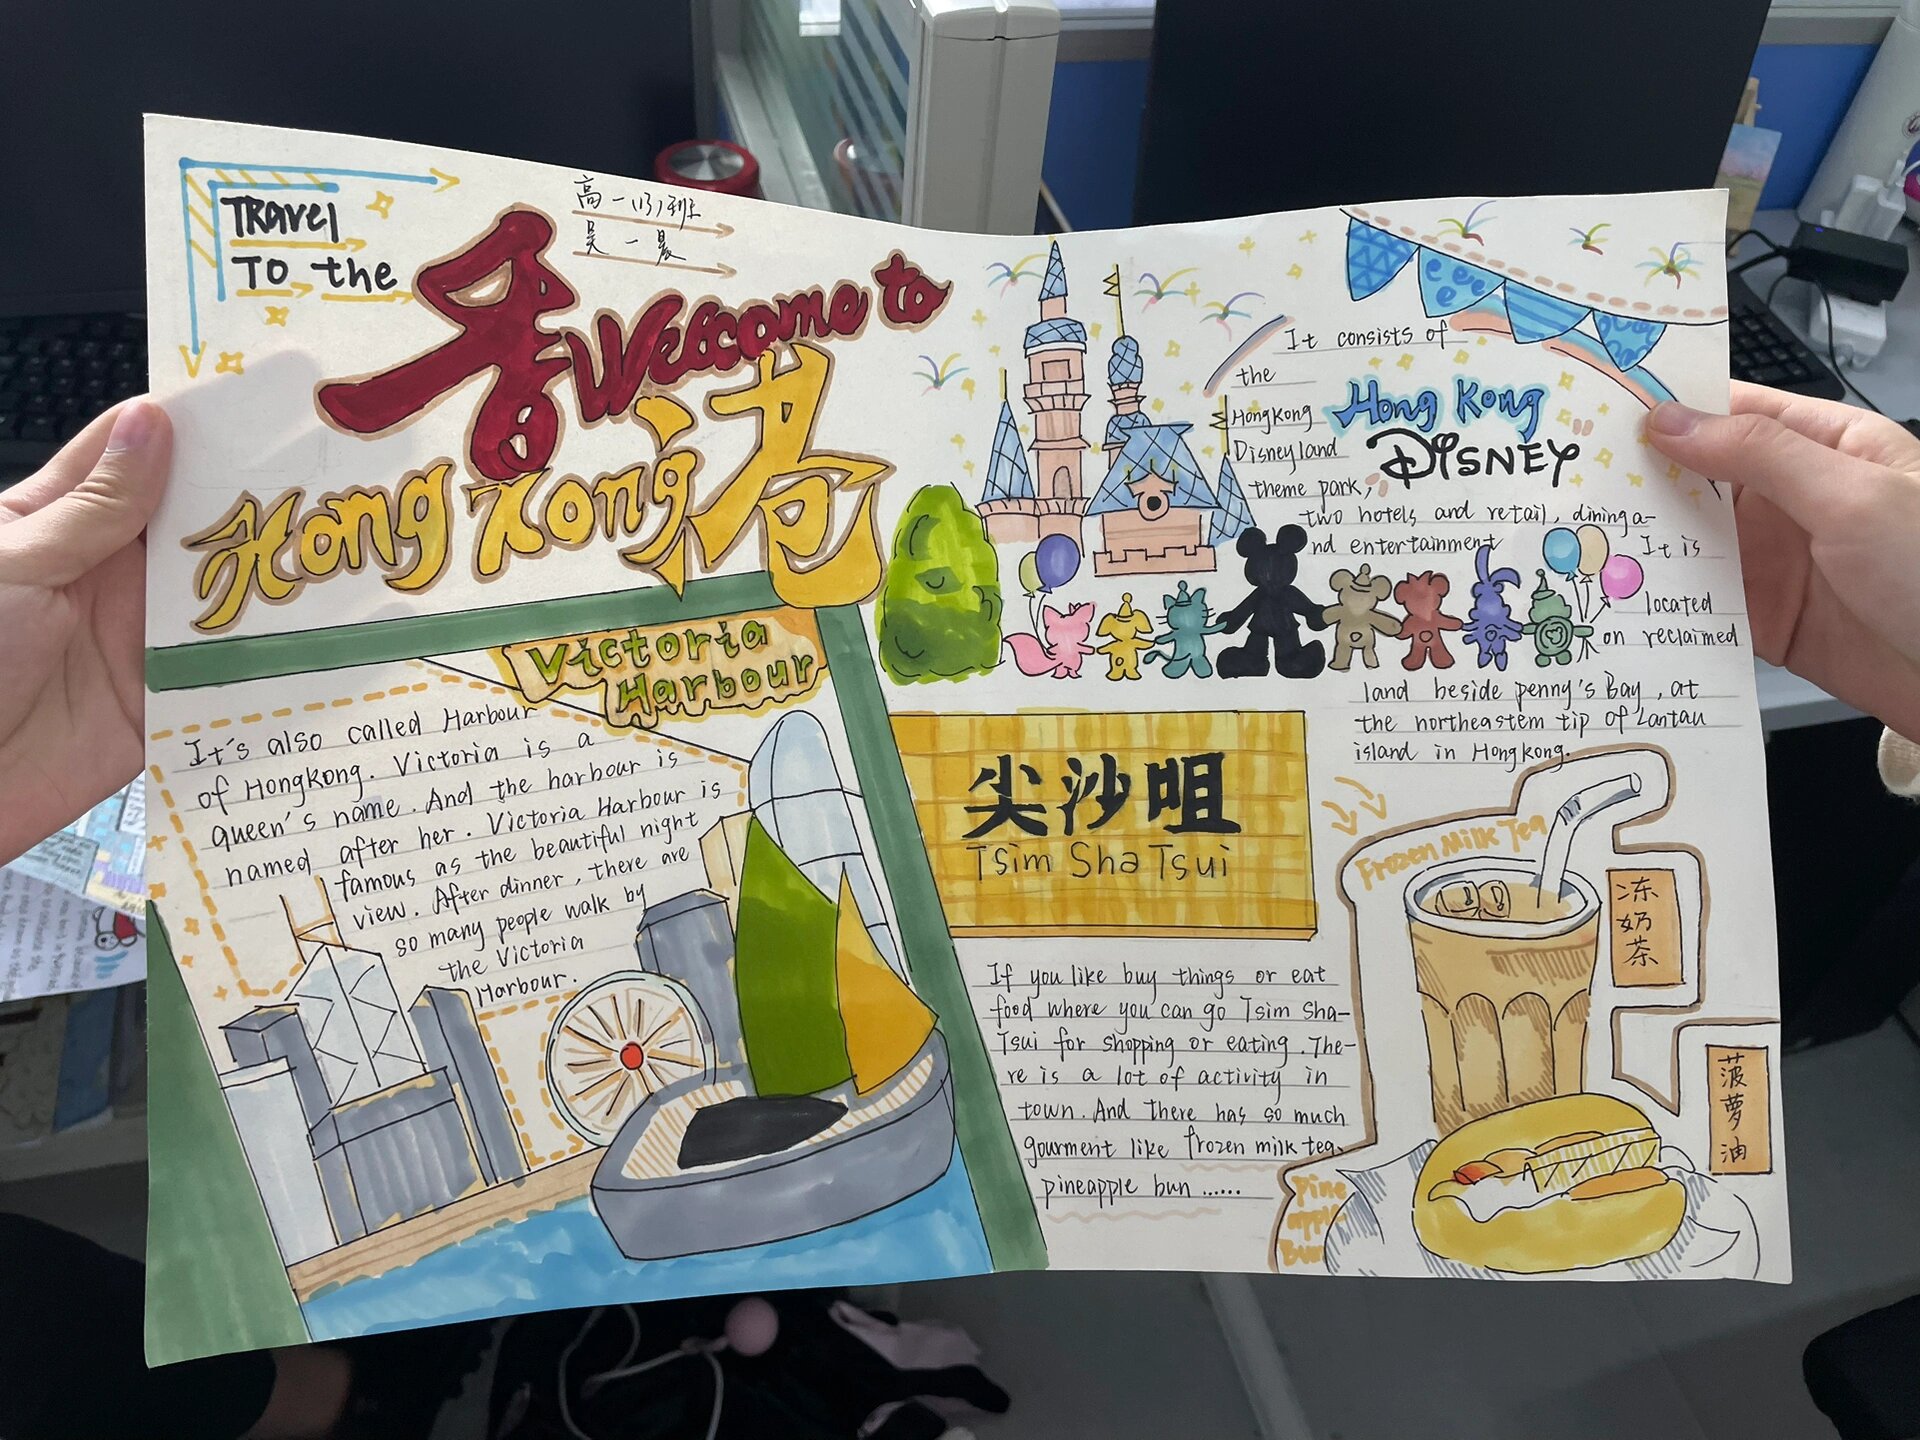 Travel
To the
高一(13)班
吴一晨
香
Welcome to
Hong Kong
港
Victoria
Harbour
It's also called Harbour
of HongKong. Victoria is a
queen's name. And the harbour is
named after her. Victoria Harbour is
famous as the beautiful night
view. After dinner, there are
so many people walk by
the Victoria
Harbour.
It consists of
the
HongKong
Disneyland
theme park,
Hong Kong
DISNEY
two hotels and retail, dining a-
nd entertainment
It is
located
on reclaimed
land beside penny's Bay, at
the northeastem tip of Lantau
island in HongKong.
尖沙咀
Tsim Sha Tsui
If you like buy things or eat
food where you can go Tsim Sha-
Tsui for shopping or eating. The-
re is a lot of activity in
town. And there has so much
gourment like frozen milk tea、
pineapple bun ......
Frozen Milk Tea
冻奶茶
菠萝油
Pine
apple
Bun